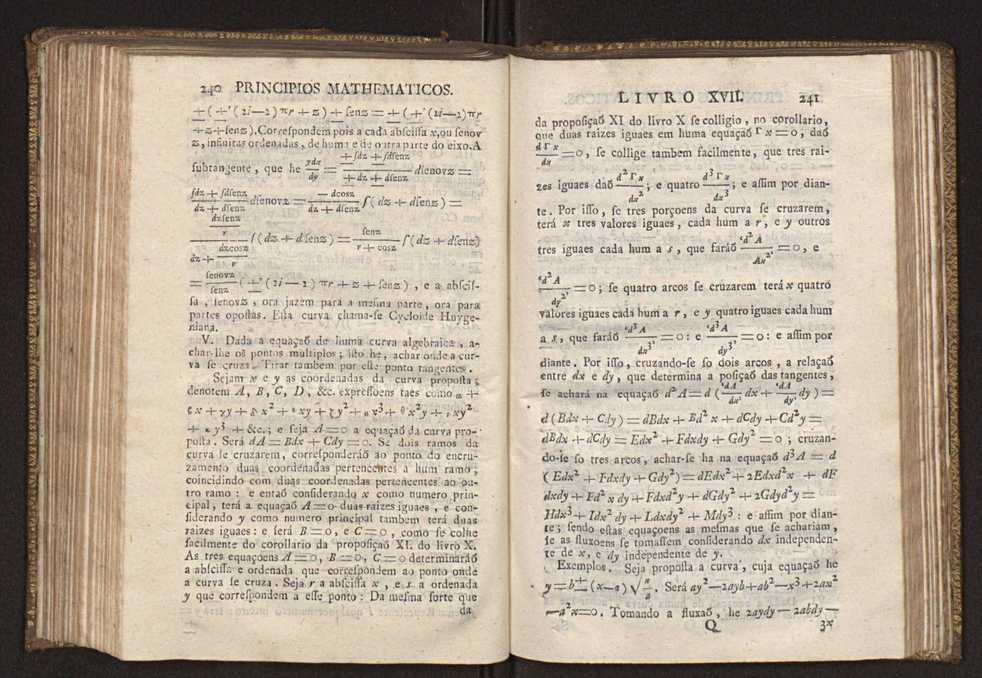 240 PRINCIPIOS MATHEMATICOS.
+(+'(2i—2)πr+z)+ſenz=+(+'(2i—2)πr
+z+ſenz). Correſpondem pois a cada abſciſſa x, ou ſenov
z, infinitas ordenadas, de huma e de outra parte do eixo. A
ſubtangente, que he ydx/dy = +ſdz+ſdſenz / +dz+dſenz dſenovz =
ſdz+ſdſenz / dz+dſenz dſenovz = —dcosz / dz+dſenz ſ(dz+dſenz) =
dzſenz/r / dz+dzcosz/r ſ(dz+dſenz) = ſenz / r+cosz ſ(dz+dſenz)
= ſenovz/ſenz (+'(2i—2)πr+z+ſenz), e a abſciſ-
ſa, ſenovz, ora jazem para a meſma parte, ora para
partes opoſtas. Eſſa curva chama-ſe Cycloide Huyge-
niana.
V. Dada a equaçaõ de huma curva algebraica, a-
char-lhe os pontos multiplos; iſto he, achar onde a cur-
va ſe cruza. Tirar tambem por eſſe ponto tangentes.
Sejam x e y as coordenadas da curva propoſta;
denotem A, B, C, D, &c. expreſſoens taes como α+
ϐx+γy+δx²+εxy+ζy²+ηx³+θx²y+ιxy²
+κy³+&c.; e ſeja A=0 a equaçaõ da curva pro-
poſta. Será dA=Bdx+Cdy=0. Se dois ramos da
curva ſe cruzarem, correſponderáõ ao ponto do encru-
zamento duas coordenadas pertencentes a hum ramo,
coincidindo com duas coordenadas pertencentes ao ou-
tro ramo: e entaõ conſiderando x como numero prin-
cipal, terá a equaçaõ A=0 duas raizes iguaes, e con-
ſiderando y como numero principal tambem terá duas
raizes iguaes: e ſerá B=0, e C=0, como ſe colhe
facilmente do corollario da propoſiçaõ XI. do livro X.
As tres equaçoens A=0, B=0, C=0 determinaráõ
a abſciſſa e ordenada que correſpondem ao ponto onde
a curva ſe cruza. Seja r a abſciſſa x, e s a ordenada
y que correſpondem a eſſe ponto: Da meſma ſorte que
da
LIVRO XVII. 241
da propoſiçaõ XI do livro X ſe colligio, no corollario,
que duas raizes iguaes em huma equaçaõ Γx=0, daõ
dΓx/dx=0, ſe collige tambem facilmente, que tres rai-
zes iguaes daõ d²Γx/dx²; e quatro d³Γx/dx³; e aſſim por dian-
te. Por iſſo, ſe tres porçoens da curva ſe cruzarem,
terá x tres valores iguaes, cada hum a r, e y outros
tres iguaes cada hum a s, que faráõ 'd²A/dx²'=0, e
'd²A/dy²'=0; ſe quatro arcos ſe cruzarem terá x quatro
valores iguaes cada hum a r, e y quatro iguaes cada hum
a s, que faráõ 'd³A/dx³'=0: e 'd³A/dy³'=0: e aſſim por
diante. Por iſſo, cruzando-ſe ſo dois arcos, a relaçaõ
entre dx e dy, que determina a poſiçaõ das tangentes,
ſe achará na equaçaõ d²A=d('dA/dx' dx+'dA/dy' dy)=
d(Bdx+Cdy)=dBdx+Bd²x+dCdy+Cd²y=
dBdx+dCdy=Edx²+Fdxdy+Gdy²=0; cruzan-
do-ſe ſo tres arcos, achar-ſe ha na equaçaõ d³A=d
(Edx²+Fdxdy+Gdy²)=dEdx²+2Edxd²x+dF
dxdy+Fd²xdy+Fdxd²y+dGdy²+2Gdyd²y=
Hdx³+Idx²dy+Ldxdy²+Mdy³: e aſſim por dian-
te; ſendo eſtas equaçoens as meſmas que ſe achariam,
ſe as fluxoens ſe tomaſſem conſiderando dx independen-
te de x, e dy independente de y.
Exemplos. Seja propoſta a curva, cuja equaçaõ he
y=b±(x—a)√x/a. Será ay²—2ayb+ab²—x³+2ax²
—a²x=0. Tomando a fluxaõ, he 2aydy—2abdy—
Q 3x